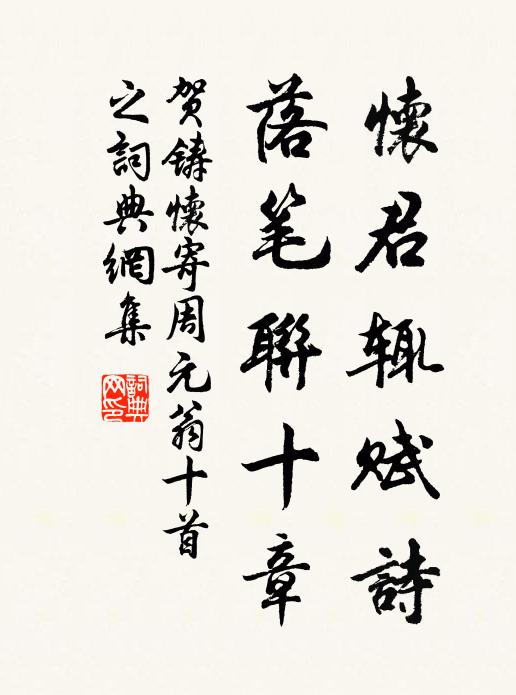 懷君辄赋詩
落笔聯十章
贺鑄懷寄周元翁十首
之詞典網集
詞典网印